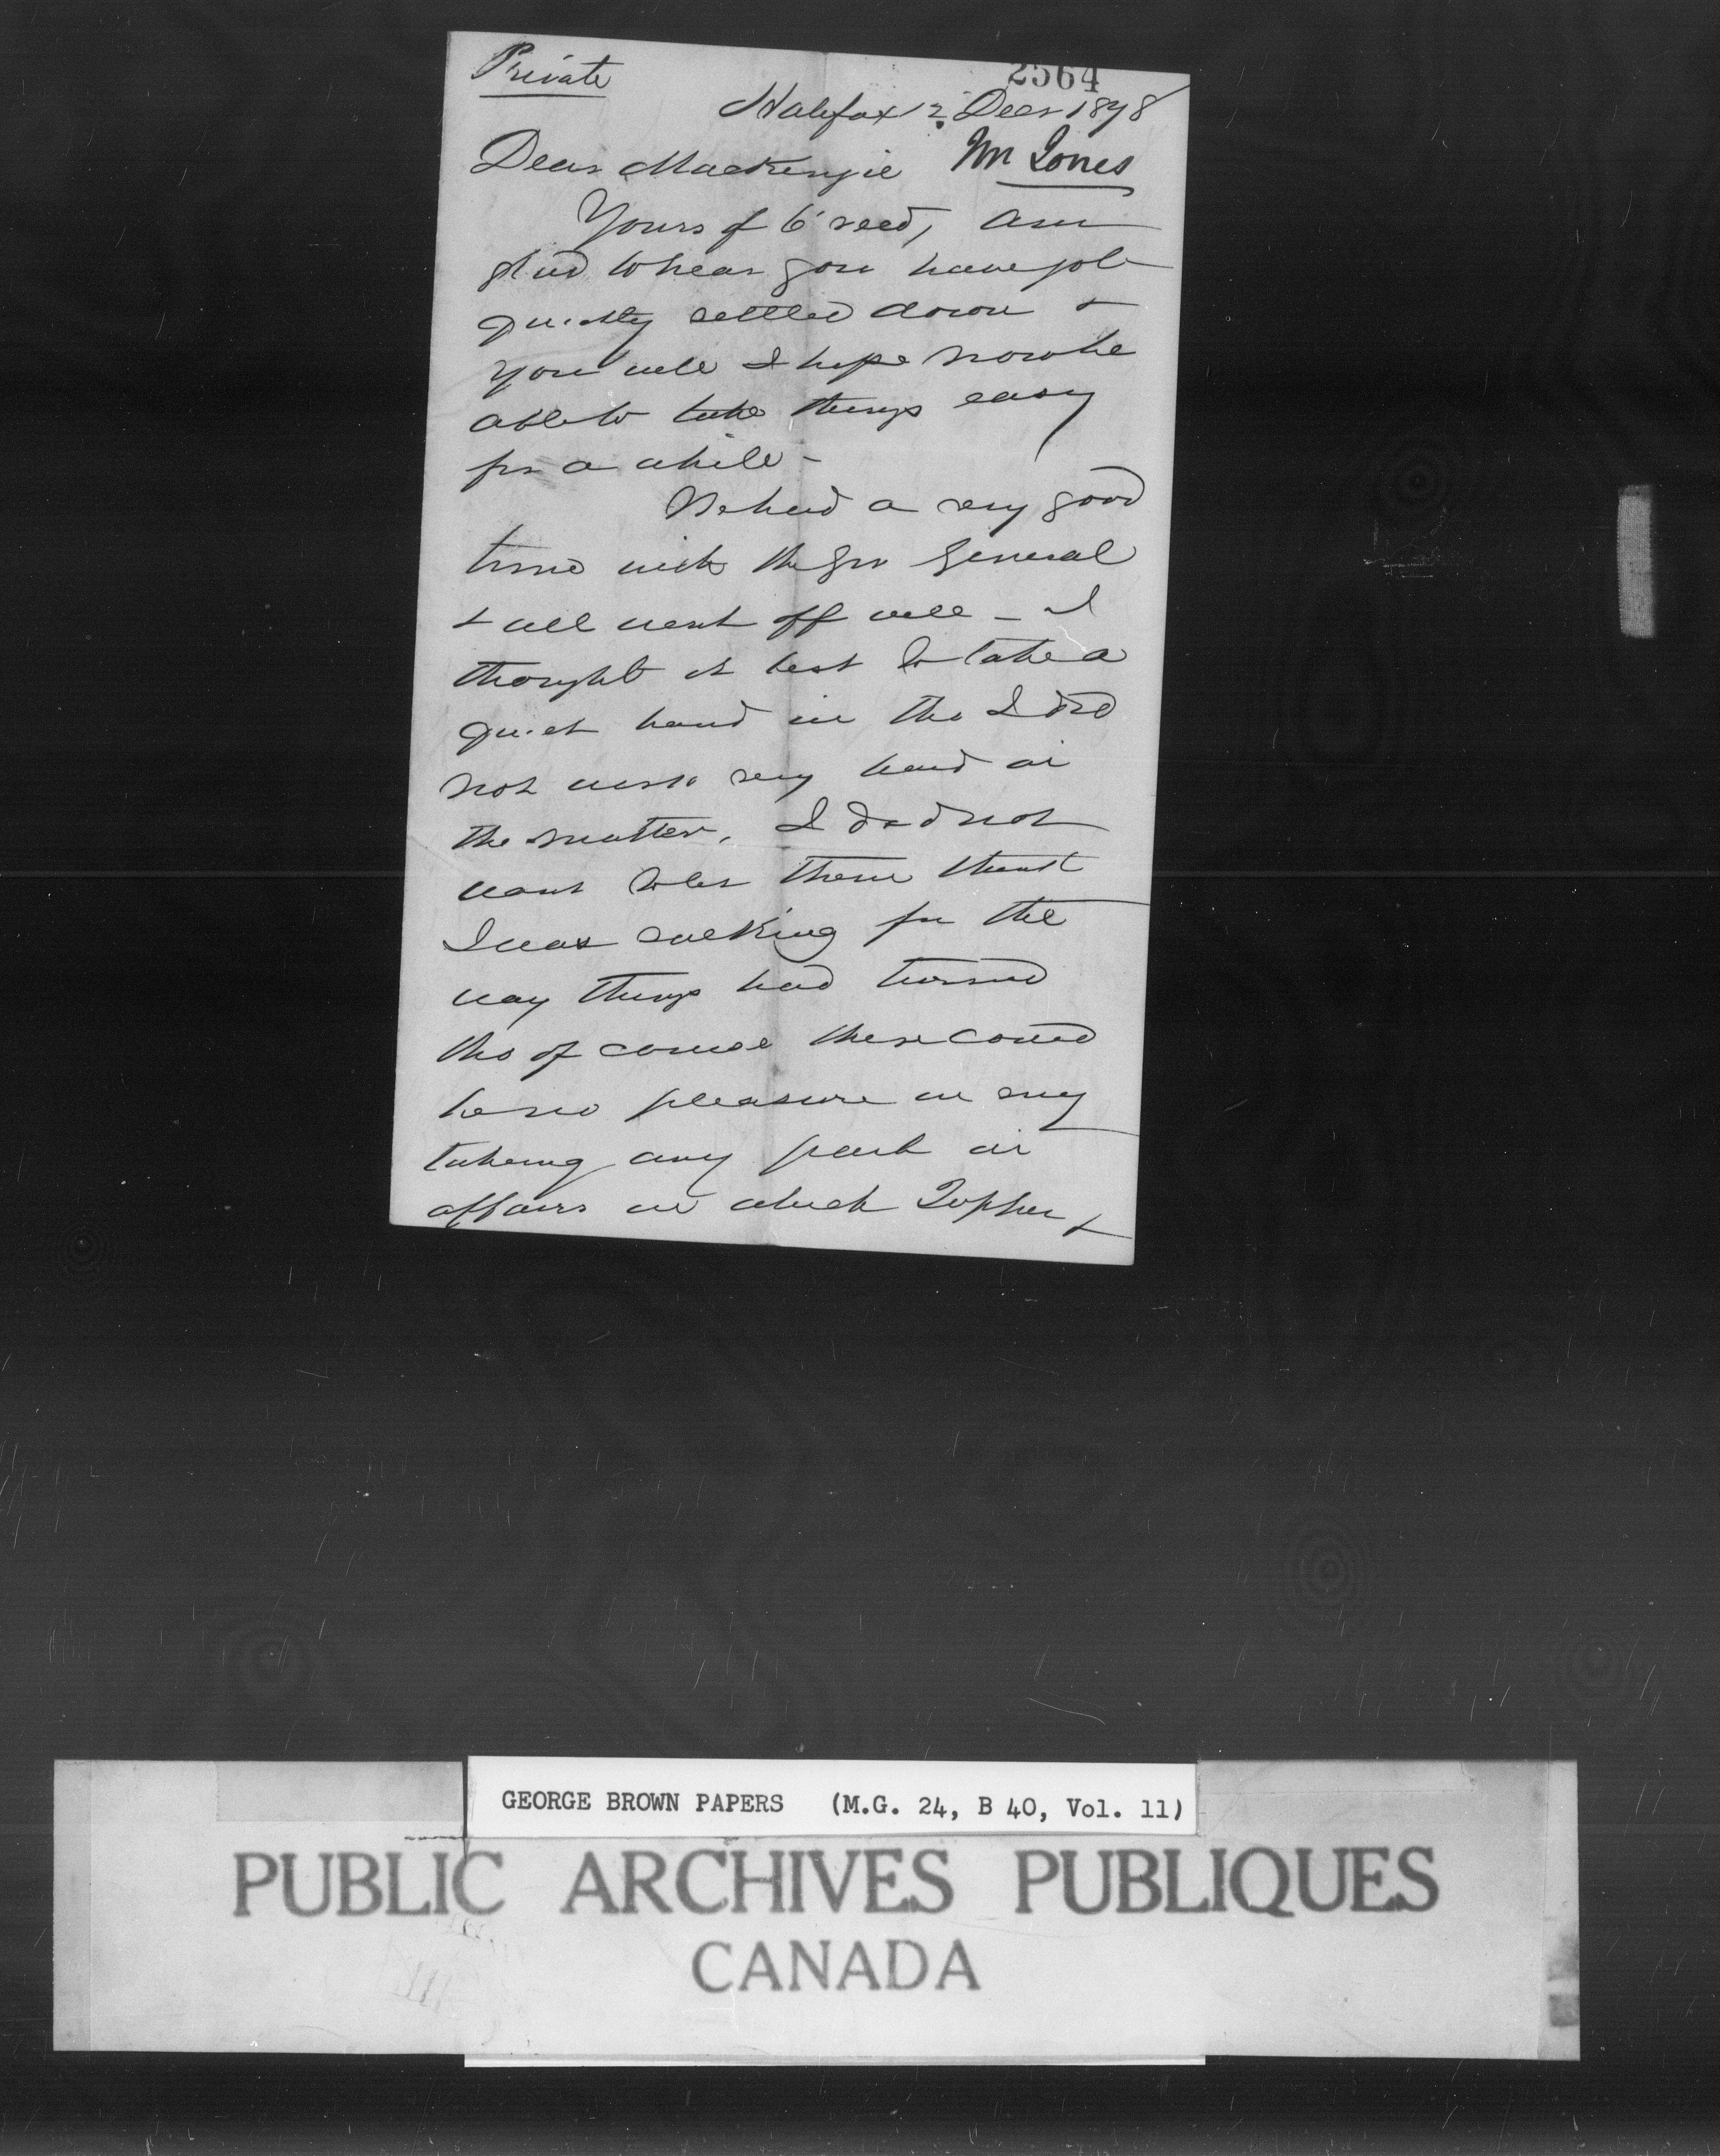 Private
2564
Halifax 12 Decr 1878
Dear Mackenzie Mr Jones
Yours of 6' recd, am
glad to hear you have got
quietly settled down &
you will I hope now be
able to take things easy
for a while -
We had a very good
time with the Gov General
& all went off well - I
thought it best to take a
quiet hand in tho I did
not very hard in
the matter. I did not
want to let them think
I was sulking for the
way things had turned
tho of course there could
be no pleasure in my
taking any part in
affairs in which Tupper &
GEORGE BROWN PAPERS (M.G. 24, B 40, Vol. 11)
PUBLIC ARCHIVES PUBLIQUES
CANADA